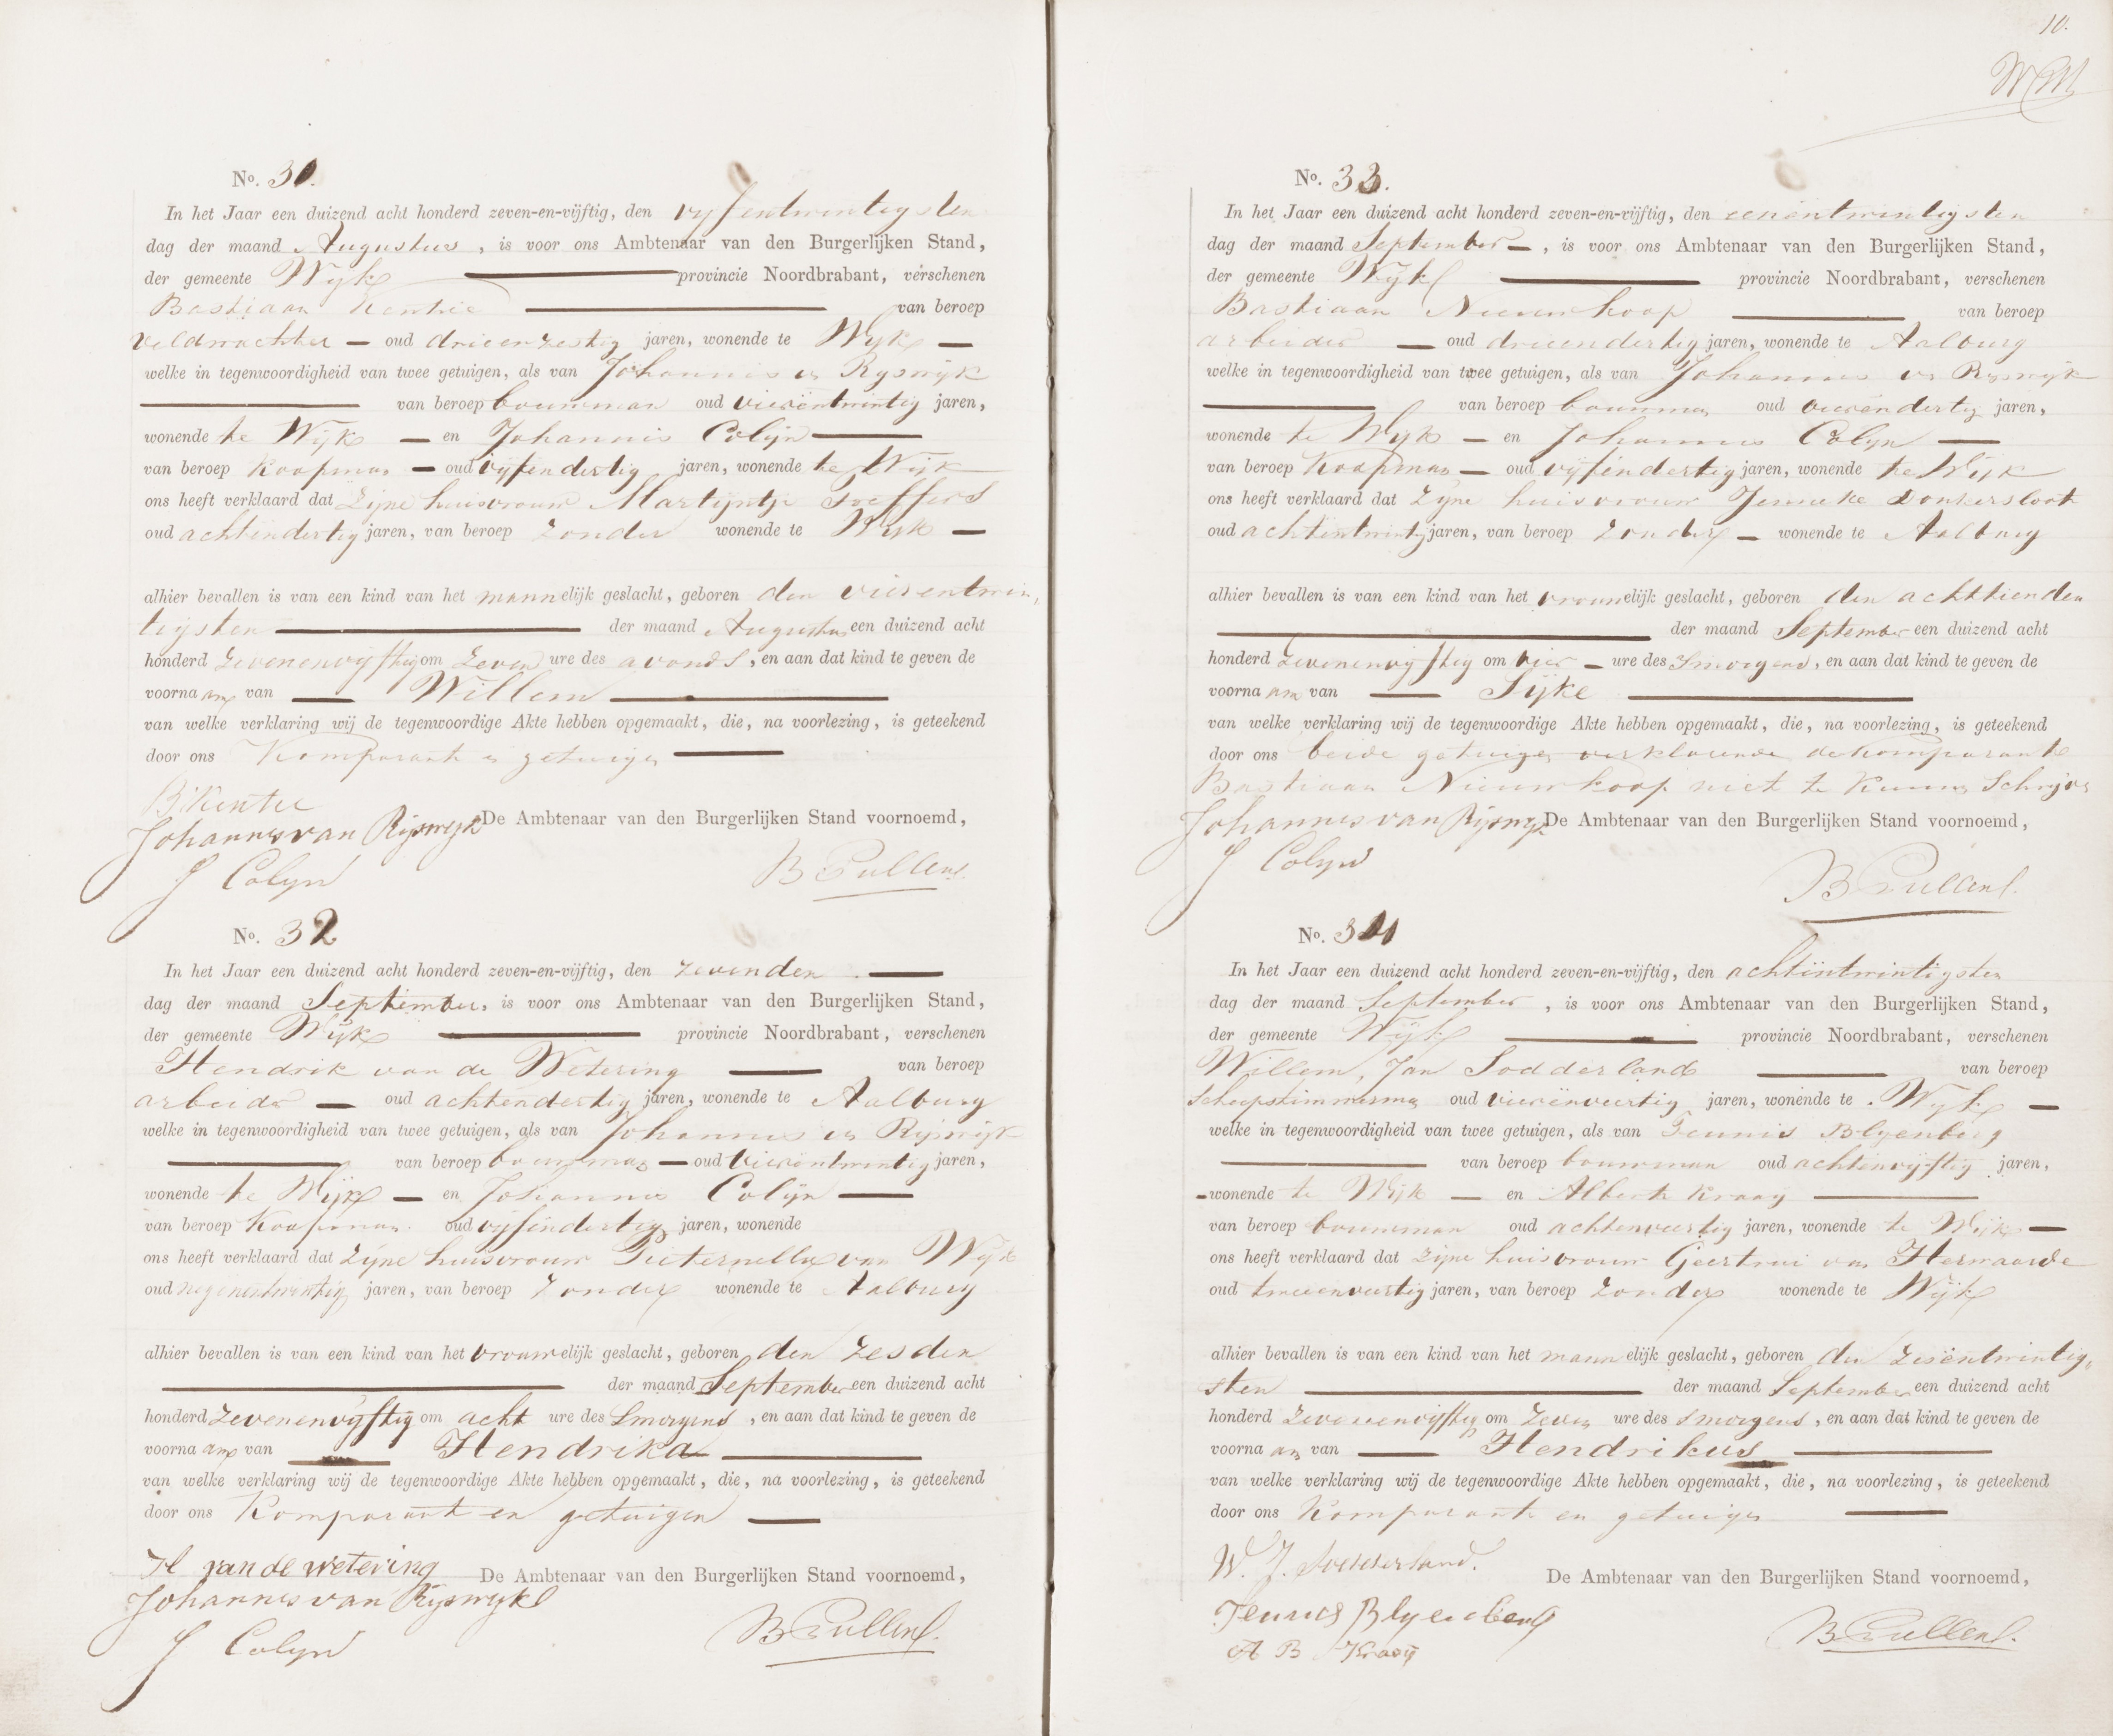 No. 31.
In het Jaar een duizend acht honderd zeven-en-vijftig, den vijfentwintigsten
dag der maand Augustus, is voor ons Ambtenaar van den Burgerlijken Stand,
der gemeente Wijk provincie Noordbrabant, verschenen
Bastiaan van beroep
veldwachter oud drieenzestig jaren, wonende te Wijk
welke in tegenwoordigheid van twee getuigen, als van Johannis v Rijswijk
van beroep bouwman oud vierëntwintig jaren,
wonende te Wijk en Johannis Colijn
van beroep Koopman oud vijfendertig jaren, wonende te Wijk
ons heeft verklaard dat Zijne huisvrouw Martijntje
oud achtendertig jaren, van beroep Zonder wonende te Wijk
alhier bevallen is van een kind van het mannelijk geslacht, geboren den vierentwin,
tigsten der maand Augustus een duizend acht
honderd Zevenenvijftig om Zeven ure des avonds, en aan dat kind te geven de
voornaam van Willem
van welke verklaring wij de tegenwoordige Akte hebben opgemaakt, die, na voorlezing, is geteekend
door ons Komparant en getuigen
Johannes van Rijswijk De Ambtenaar van den Burgerlijken Stand voornoemd,
J Colijn B Pullens.
No. 32
In het Jaar een duizend acht honderd zeven-en-vijftig, den zevenden
dag der maand September, is voor ons Ambtenaar van den Burgerlijken Stand,
der gemeente Wijk provincie Noordbrabant, verschenen
Hendrik van de Wetering van beroep
arbeider oud achtendertig jaren, wonende te Aalburg
welke in tegenwoordigheid van twee getuigen, als van Johannis v Rijswijk
van beroep bouwman oud vierëntwintig jaren,
wonende te Wijk en Johannis Colijn
van beroep Koopman oud vijfendertig jaren, wonende
ons heeft verklaard dat Zijne huisvrouw Pieternella van Wijk
oud negenentwintig jaren, van beroep Zonder wonende te Aalburg
alhier bevallen is van een kind van het vrouwelijk geslacht, geboren den Zesden
der maand September een duizend acht
honderd Zevenenvijftig om acht ure des Smorgens, en aan dat kind te geven de
voornaam van Hendrika
van welke verklaring wij de tegenwoordige Akte hebben opgemaakt, die, na voorlezing, is geteekend
door ons Komparant en getuigen
H van de wetering De Ambtenaar van den Burgerlijken Stand voornoemd,
Johannes van Rijswijk
J Colijn B Pullens.
10.
No. 33.
In het Jaar een duizend acht honderd zeven-en-vijftig, den eenentwintigsten
dag der maand September, is voor ons Ambtenaar van den Burgerlijken Stand,
der gemeente Wijk provincie Noordbrabant, verschenen
Bastiaan Nieuwkoop van beroep
arbeider oud drieendertig jaren, wonende te Aalburg
welke in tegenwoordigheid van twee getuigen, als van Johannis v Rijswijk
van beroep bouwman oud vierëndertig jaren,
wonende te Wijk en Johannis Colijn
van beroep Koopman oud vijfendertig jaren, wonende te Wijk
ons heeft verklaard dat Zijne huisvrouw Jenneke Donkersloot
oud achtentwintig jaren, van beroep Zonder wonende te Aalburg
alhier bevallen is van een kind van het vrouwelijk geslacht, geboren den achttienden
der maand September een duizend acht
honderd Zevenenvijftig om vier ure des Smorgens, en aan dat kind te geven de
voornaam van Sijke
van welke verklaring wij de tegenwoordige Akte hebben opgemaakt, die, na voorlezing, is geteekend
door ons beide getuigen verklarende de Komparante
Bastiaan Nieuwkoop niet te Kunnen Schrijven
Johannes van Rijswijk De Ambtenaar van den Burgerlijken Stand voornoemd,
J Colijn B Pullens.
No. 34
In het Jaar een duizend acht honderd zeven-en-vijftig, den achtëntwintigsten
dag der maand September, is voor ons Ambtenaar van den Burgerlijken Stand,
der gemeente Wijk provincie Noordbrabant, verschenen
Willem, Jan Sodderland van beroep
Scheepstimmerman oud vierënveertig jaren, wonende te Wijk
welke in tegenwoordigheid van twee getuigen, als van Teunis Blijenberg
van beroep bouwman oud achtenvijftig jaren,
wonende te Wijk en Albert Kraay
van beroep bouwman oud achtenveertig jaren, wonende te Wijk
ons heeft verklaard dat Zijne huisvrouw Geertrui van Herwaarde
oud tweeenveertig jaren, van beroep Zonder wonende te Wijk
alhier bevallen is van een kind van het mannelijk geslacht, geboren den Zesëntwintig,
sten der maand September een duizend acht
honderd Zevenenvijftig om Zeven ure des smorgens, en aan dat kind te geven de
voornaam van Hendrikus
van welke verklaring wij de tegenwoordige Akte hebben opgemaakt, die, na voorlezing, is geteekend
door ons Komparant en getuigen
W. J. Sodderland. De Ambtenaar van den Burgerlijken Stand voornoemd,
Teunes Blyenberg
A B Kraaij B Pullens.